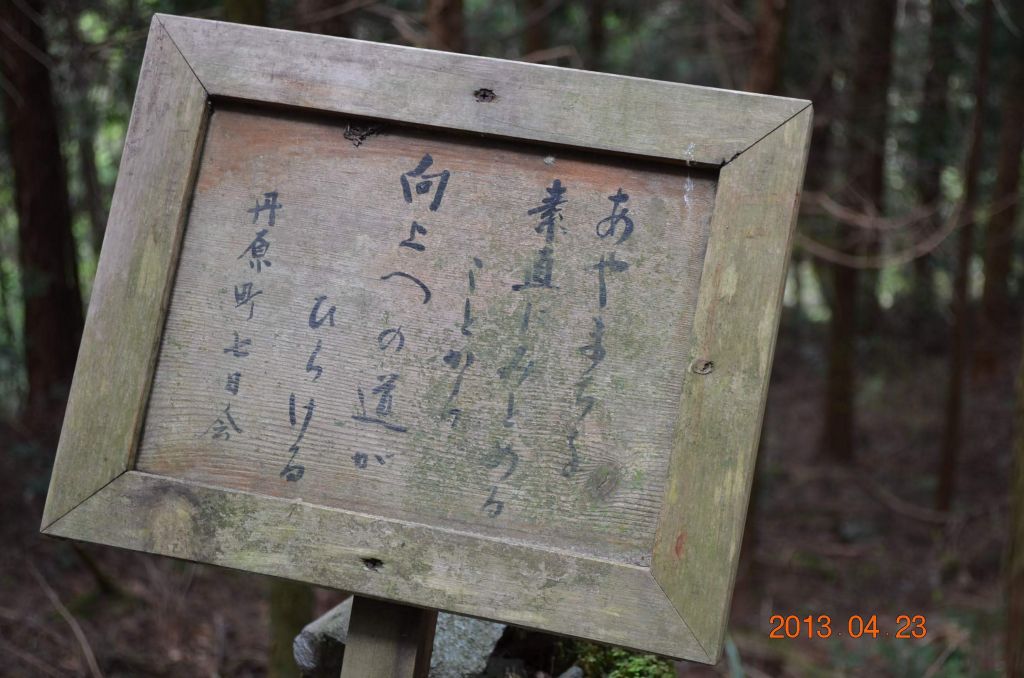 あやまちを
素直にみとめる
ことから
向上へ
の道が
ひらける
丹原町七日会
2013.04.23